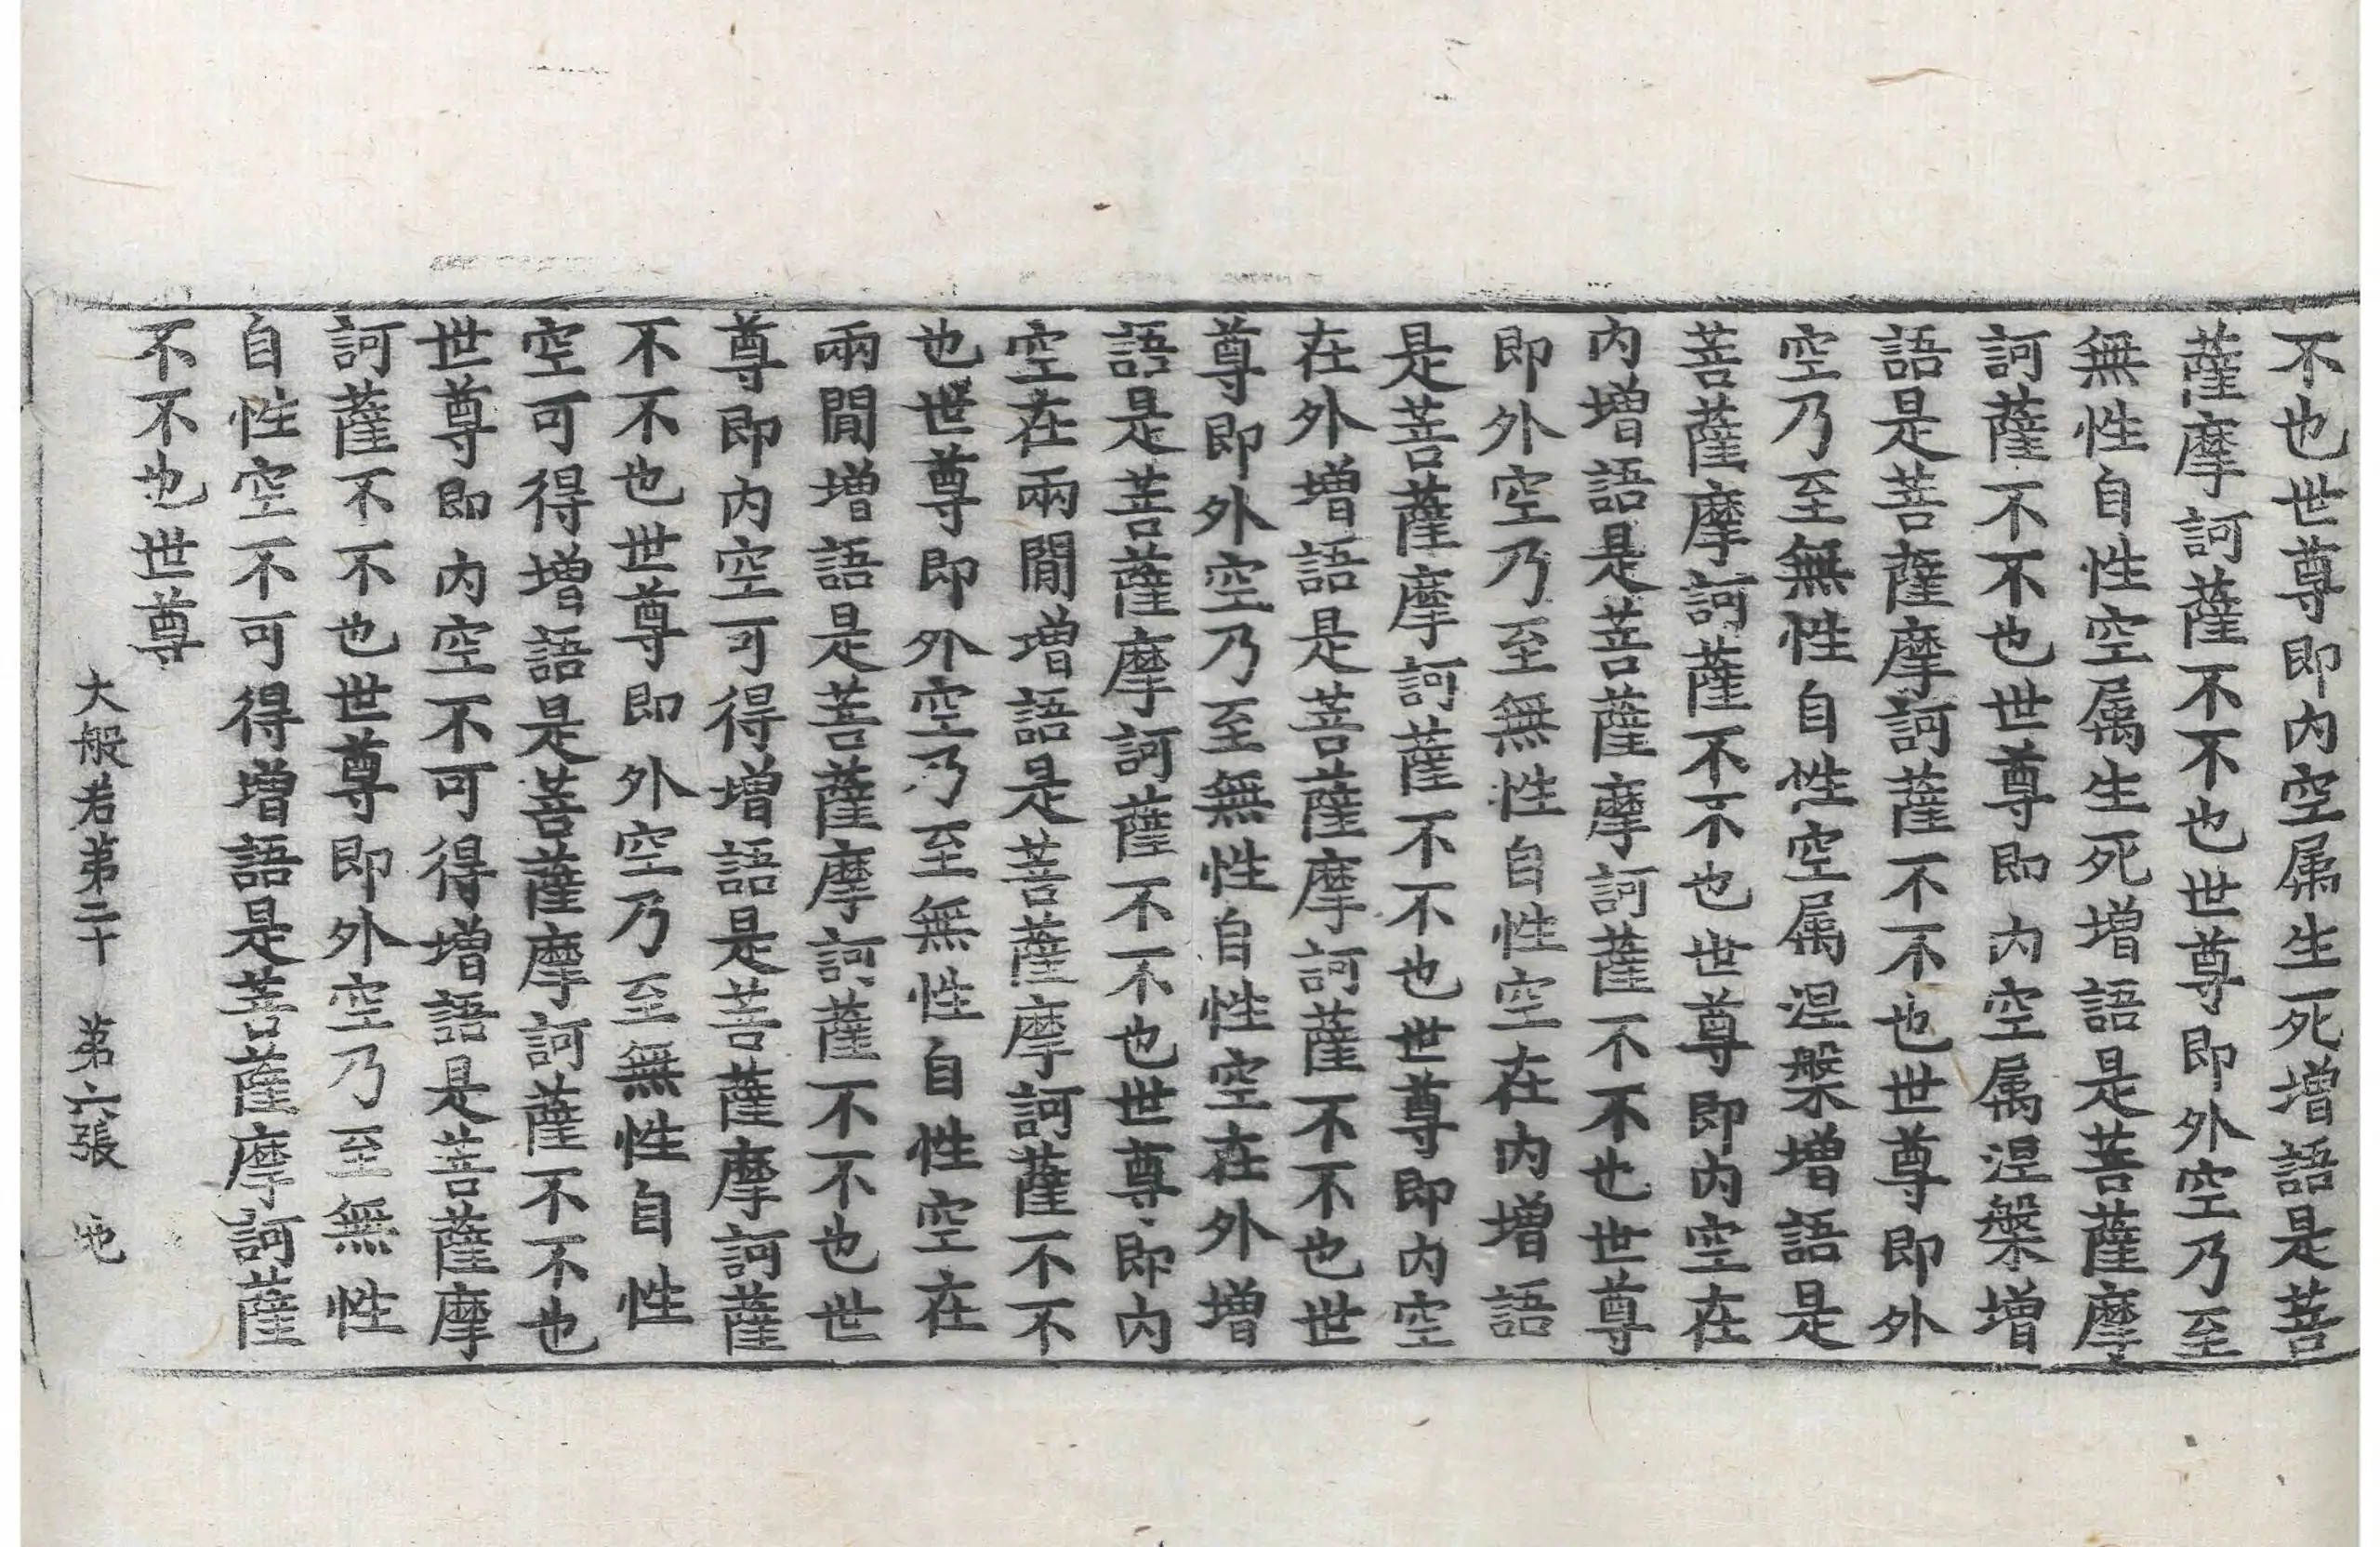 不也世尊即内空属生死增語是菩
薩摩訶薩不不也世尊即外空乃至
無性自性空属生死增語是菩薩摩
訶薩不不也世尊即内空属涅槃增
語是菩薩摩訶薩不不也世尊即外
空乃至無性自性空属涅槃增語是
菩薩摩訶薩不不也世尊即内空在
内增語是菩薩摩訶薩不不也世尊
即外空乃至無性自性空在内增語
是菩薩摩訶薩不不也世尊即内空
在外增語是菩薩摩訶薩不不也世
尊即外空乃至無性自性空在外增
語是菩薩摩訶薩不不也世尊即内
空在兩閒增語是菩薩摩訶薩不不
也世尊即外空乃至無性自性空在
兩閒增語是菩薩摩訶薩不不也世
尊即内空可得增語是菩薩摩訶薩
不不也世尊即外空乃至無性自性
空可得增語是菩薩摩訶薩不不也
世尊即内空不可得增語是菩薩摩
訶薩不不也世尊即外空乃至無性
自性空不可得增語是菩薩摩訶薩
不不也世尊
大般若第三十 第六張 地